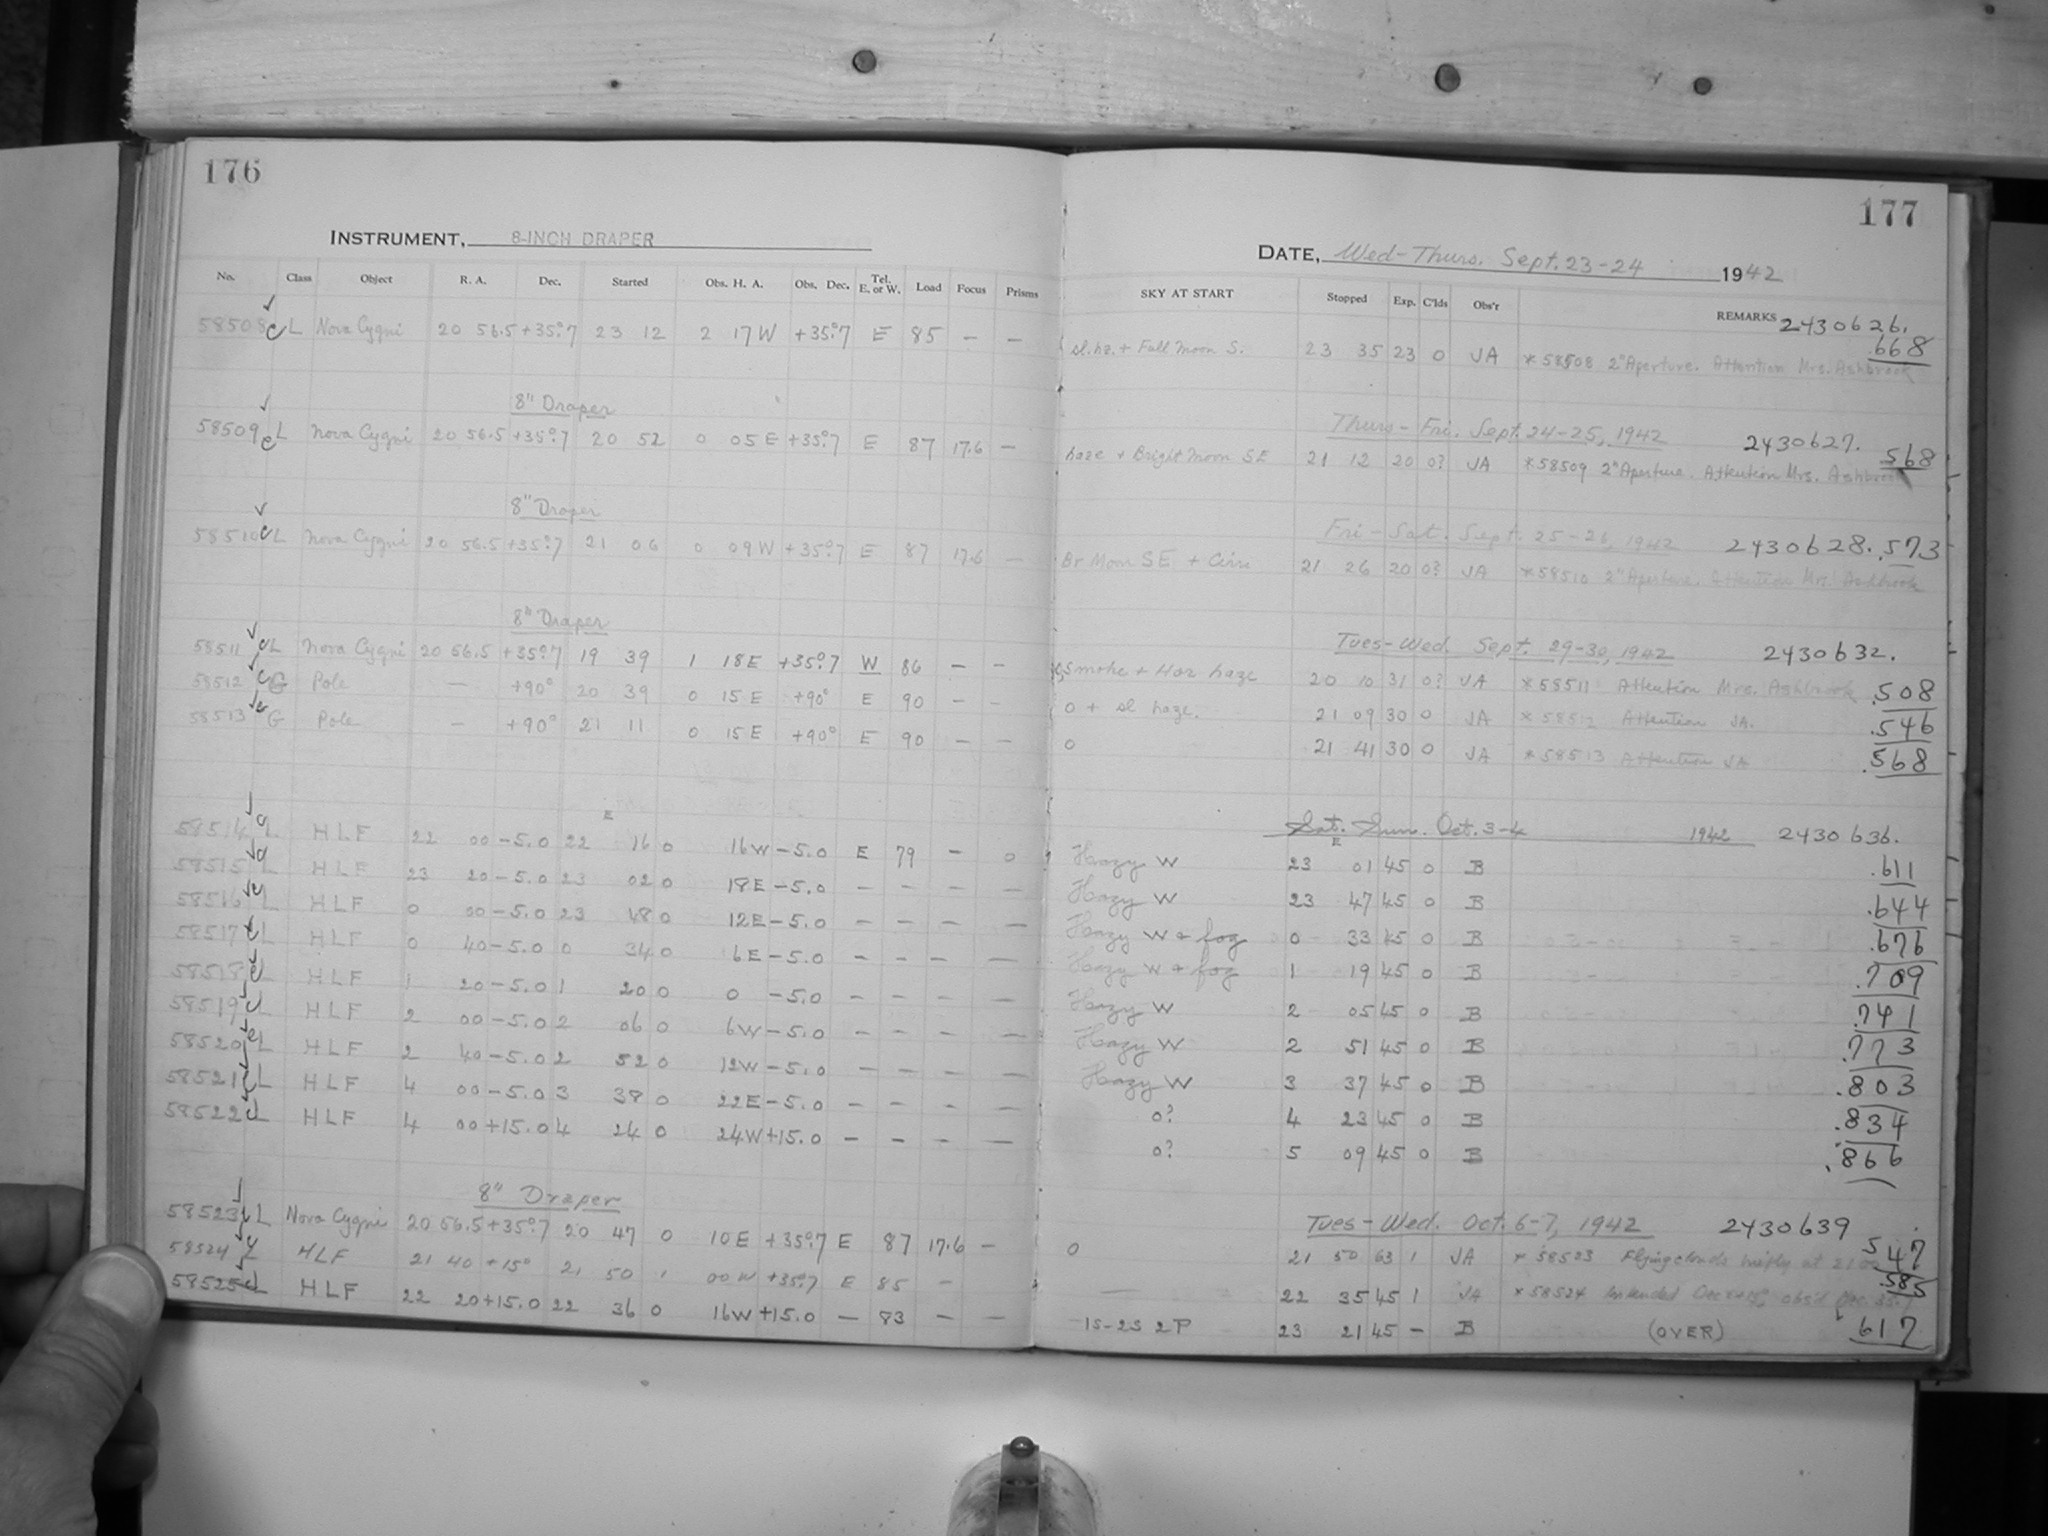 176
INSTRUMENT, 8-INCH DRAPER
No. Class Object R. A. Dec. Started Obs. H. A. Obs. Dec. Tel. E. or W. Load Focus Prisms
58508 c L Nova Cygni 20 56.5 +35°.7 23 12 2 17 W +35°.7 E 85 – –
8" Draper
58509 c L Nova Cygni 20 56.5 +35°.7 20 52 0 05 E +35°.7 E 87 17.6 –
8" Draper
58510 c L Nova Cygni 20 56.5 +35°.7 21 06 0 09 W +35°.7 E 87 17.6 –
8" Draper
58511 c L Nova Cygni 20 56.5 +35°.7 19 39 1 18 E +35°.7 W 86 – –
58512 c G Pole – +90° 20 39 0 15 E +90° E 90 – –
58513 c G Pole – +90° 21 11 0 15 E +90° E 90 – –
E
58514 L HLF 22 00 –5.0 22 16 0 16 W –5.0 E 79 – 0
58515 L HLF 23 20 –5.0 23 02 0 18 E –5.0 – – – –
58516 L HLF 0 00 –5.0 23 48 0 12 E –5.0 – – – –
58517 L HLF 0 40 –5.0 0 34 0 6 E –5.0 – – – –
58518 L HLF 1 20 –5.0 1 20 0 0 –5.0 – – – –
58519 L HLF 2 00 –5.0 2 06 0 6 W –5.0 – – – –
58520 L HLF 2 40 –5.0 2 52 0 12 W –5.0 – – – –
58521 L HLF 4 00 –5.0 3 38 0 22 E –5.0 – – – –
58522 L HLF 4 00 +15.0 4 24 0 24 W +15.0 – – – –
8" Draper
58523 L Nova Cygni 20 56.5 +35°.7 20 47 0 10 E +35°.7 E 87 17.6 –
58524 HLF 21 40 +15° 21 50 1 00 W +35°.7 E 85 –
58525 L HLF 22 20 +15.0 22 36 0 16 W +15.0 – 83 – –
177
DATE, Wed-Thurs. Sept. 23-24 1942
SKY AT START Stopped Exp. C'lds Obs'r REMARKS
2430626.
sl. hz. + Full Moon S. 23 35 23 0 JA *58508 2" Aperture. Attention Mrs. Ashbrook .668
Thurs-Fri. Sept. 24-25, 1942 2430627.
haze + Bright Moon SE 21 12 20 0? JA *58509 2" Aperture. Attention Mrs. Ashbrook 568
Fri-Sat. Sept. 25-26, 1942 2430628. .573
Br Moon SE + Cirri 21 26 20 0? JA *58510 2" Aperture. Attention Mrs. Ashbrook
Tues-Wed. Sept. 29-30, 1942 2430632.
Smoke + Hor haze 20 10 31 0? JA *58511 Attention Mrs. Ashbrook .508
0 + sl haze. 21 09 30 0 JA *58512 Attention JA. .546
0 21 41 30 0 JA *58513 Attention JA .568
Sat. Sun. Oct. 3-4 1942 2430636.
E
Hazy W 23 01 45 0 B .611
Hazy W 23 47 45 0 B .644
Hazy W & fog 0 33 45 0 B .676
Hazy W & fog 1 19 45 0 B .709
Hazy W 2 05 45 0 B .741
Hazy W 2 51 45 0 B .773
Hazy W 3 37 45 0 B .803
0? 4 23 45 0 B .834
0? 5 09 45 0 B .866
Tues-Wed. Oct. 6-7, 1942 2430639
0 21 50 63 1 JA *58523 Flying clouds briefly at 547
— 22 35 45 1 JA *58524 Intended Dec +15°, obs'd Dec 35.7 .585
15-25 2P 23 21 45 – B (OVER) 617